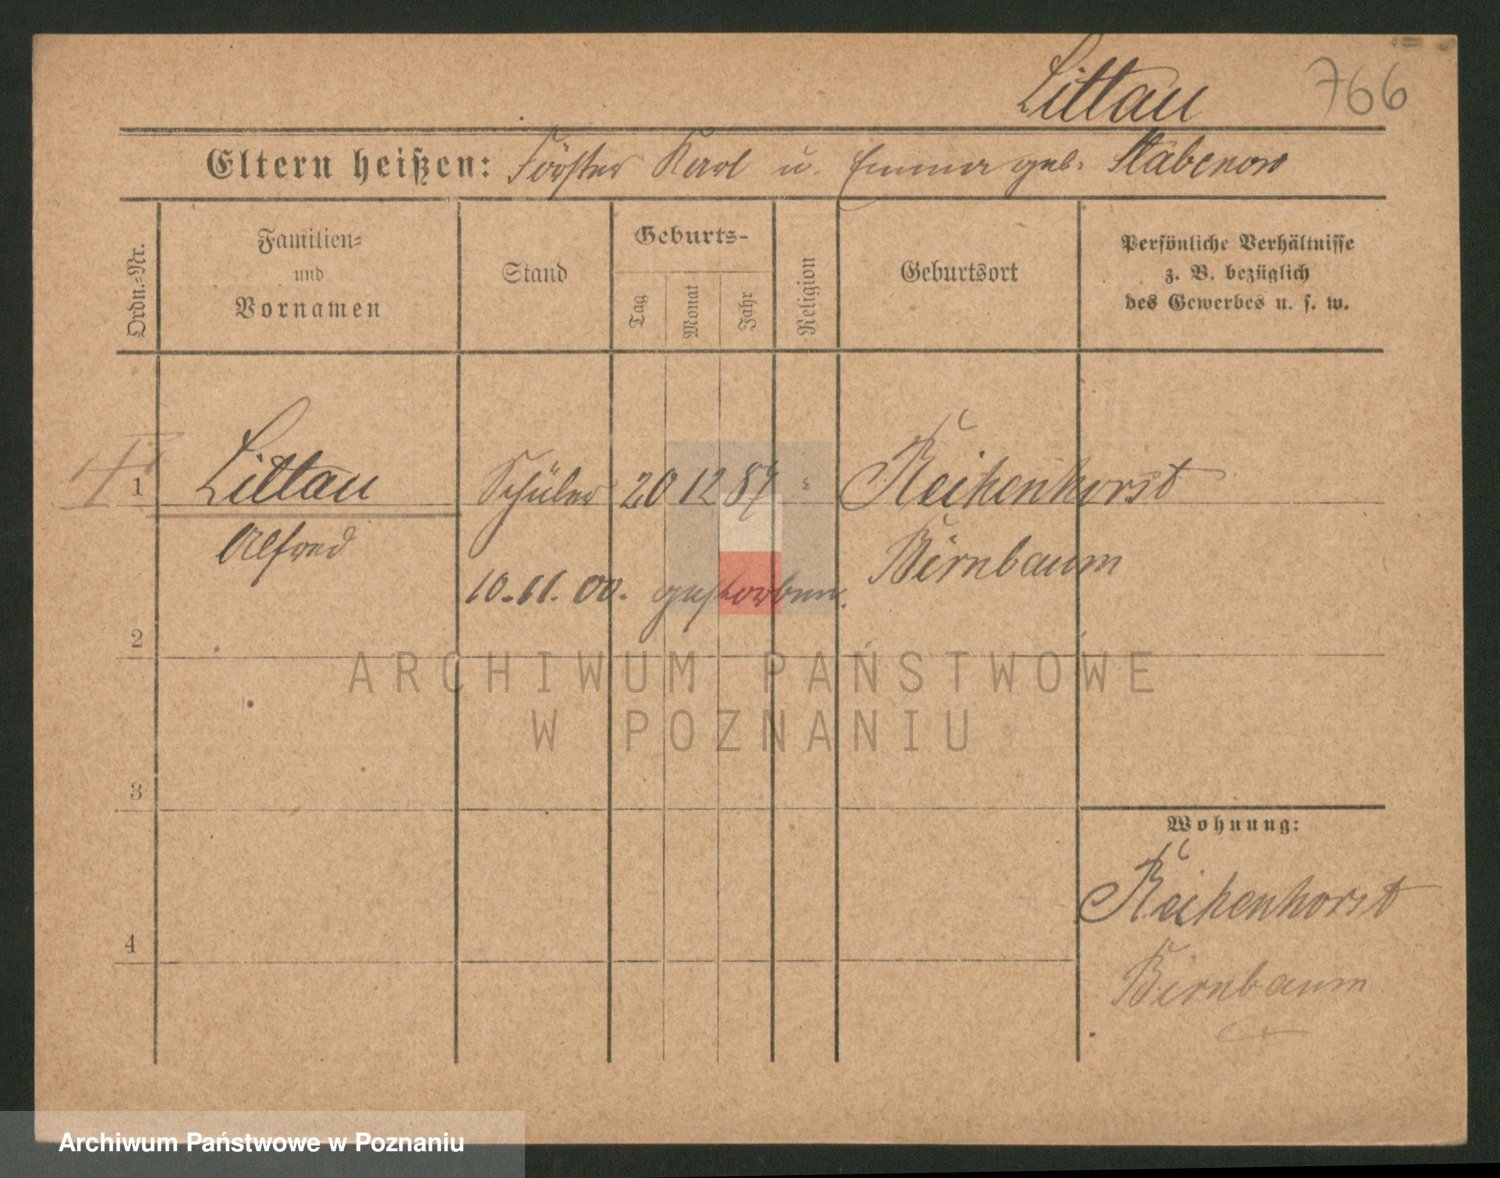 Littau 766
Eltern heißen: Förster Karl u. Emma geb. Stabenow
Ordn.-Nr.
Familien-
und
Vornamen
Stand
Geburts-
Tag
Monat
Jahr
Religion
Geburtsort
Persönliche Verhältnisse
z. B. bezüglich
des Gewerbes u. s. w.
1 Littau Schüler 20 12 87 Reihenhorst
Alfred Birnbaum
10.11.00. gestorben.
2
ARCHIWUM PAŃSTWOWE
W POZNANIU
3
Wohnung:
Reihenhorst
4
Birnbaum
Archiwum Państwowe w Poznaniu